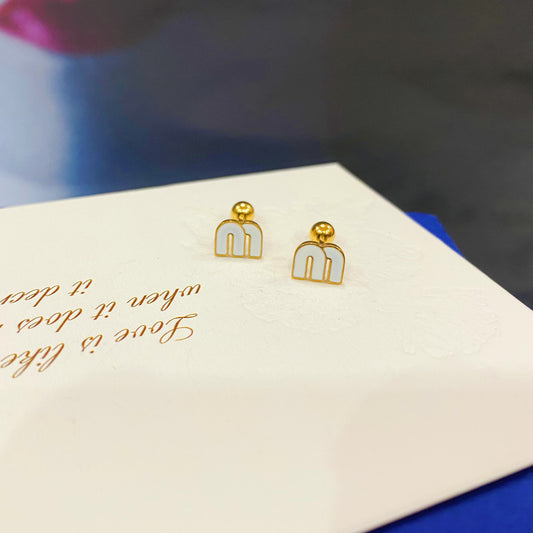 Love is like
when it does
it decr
m m